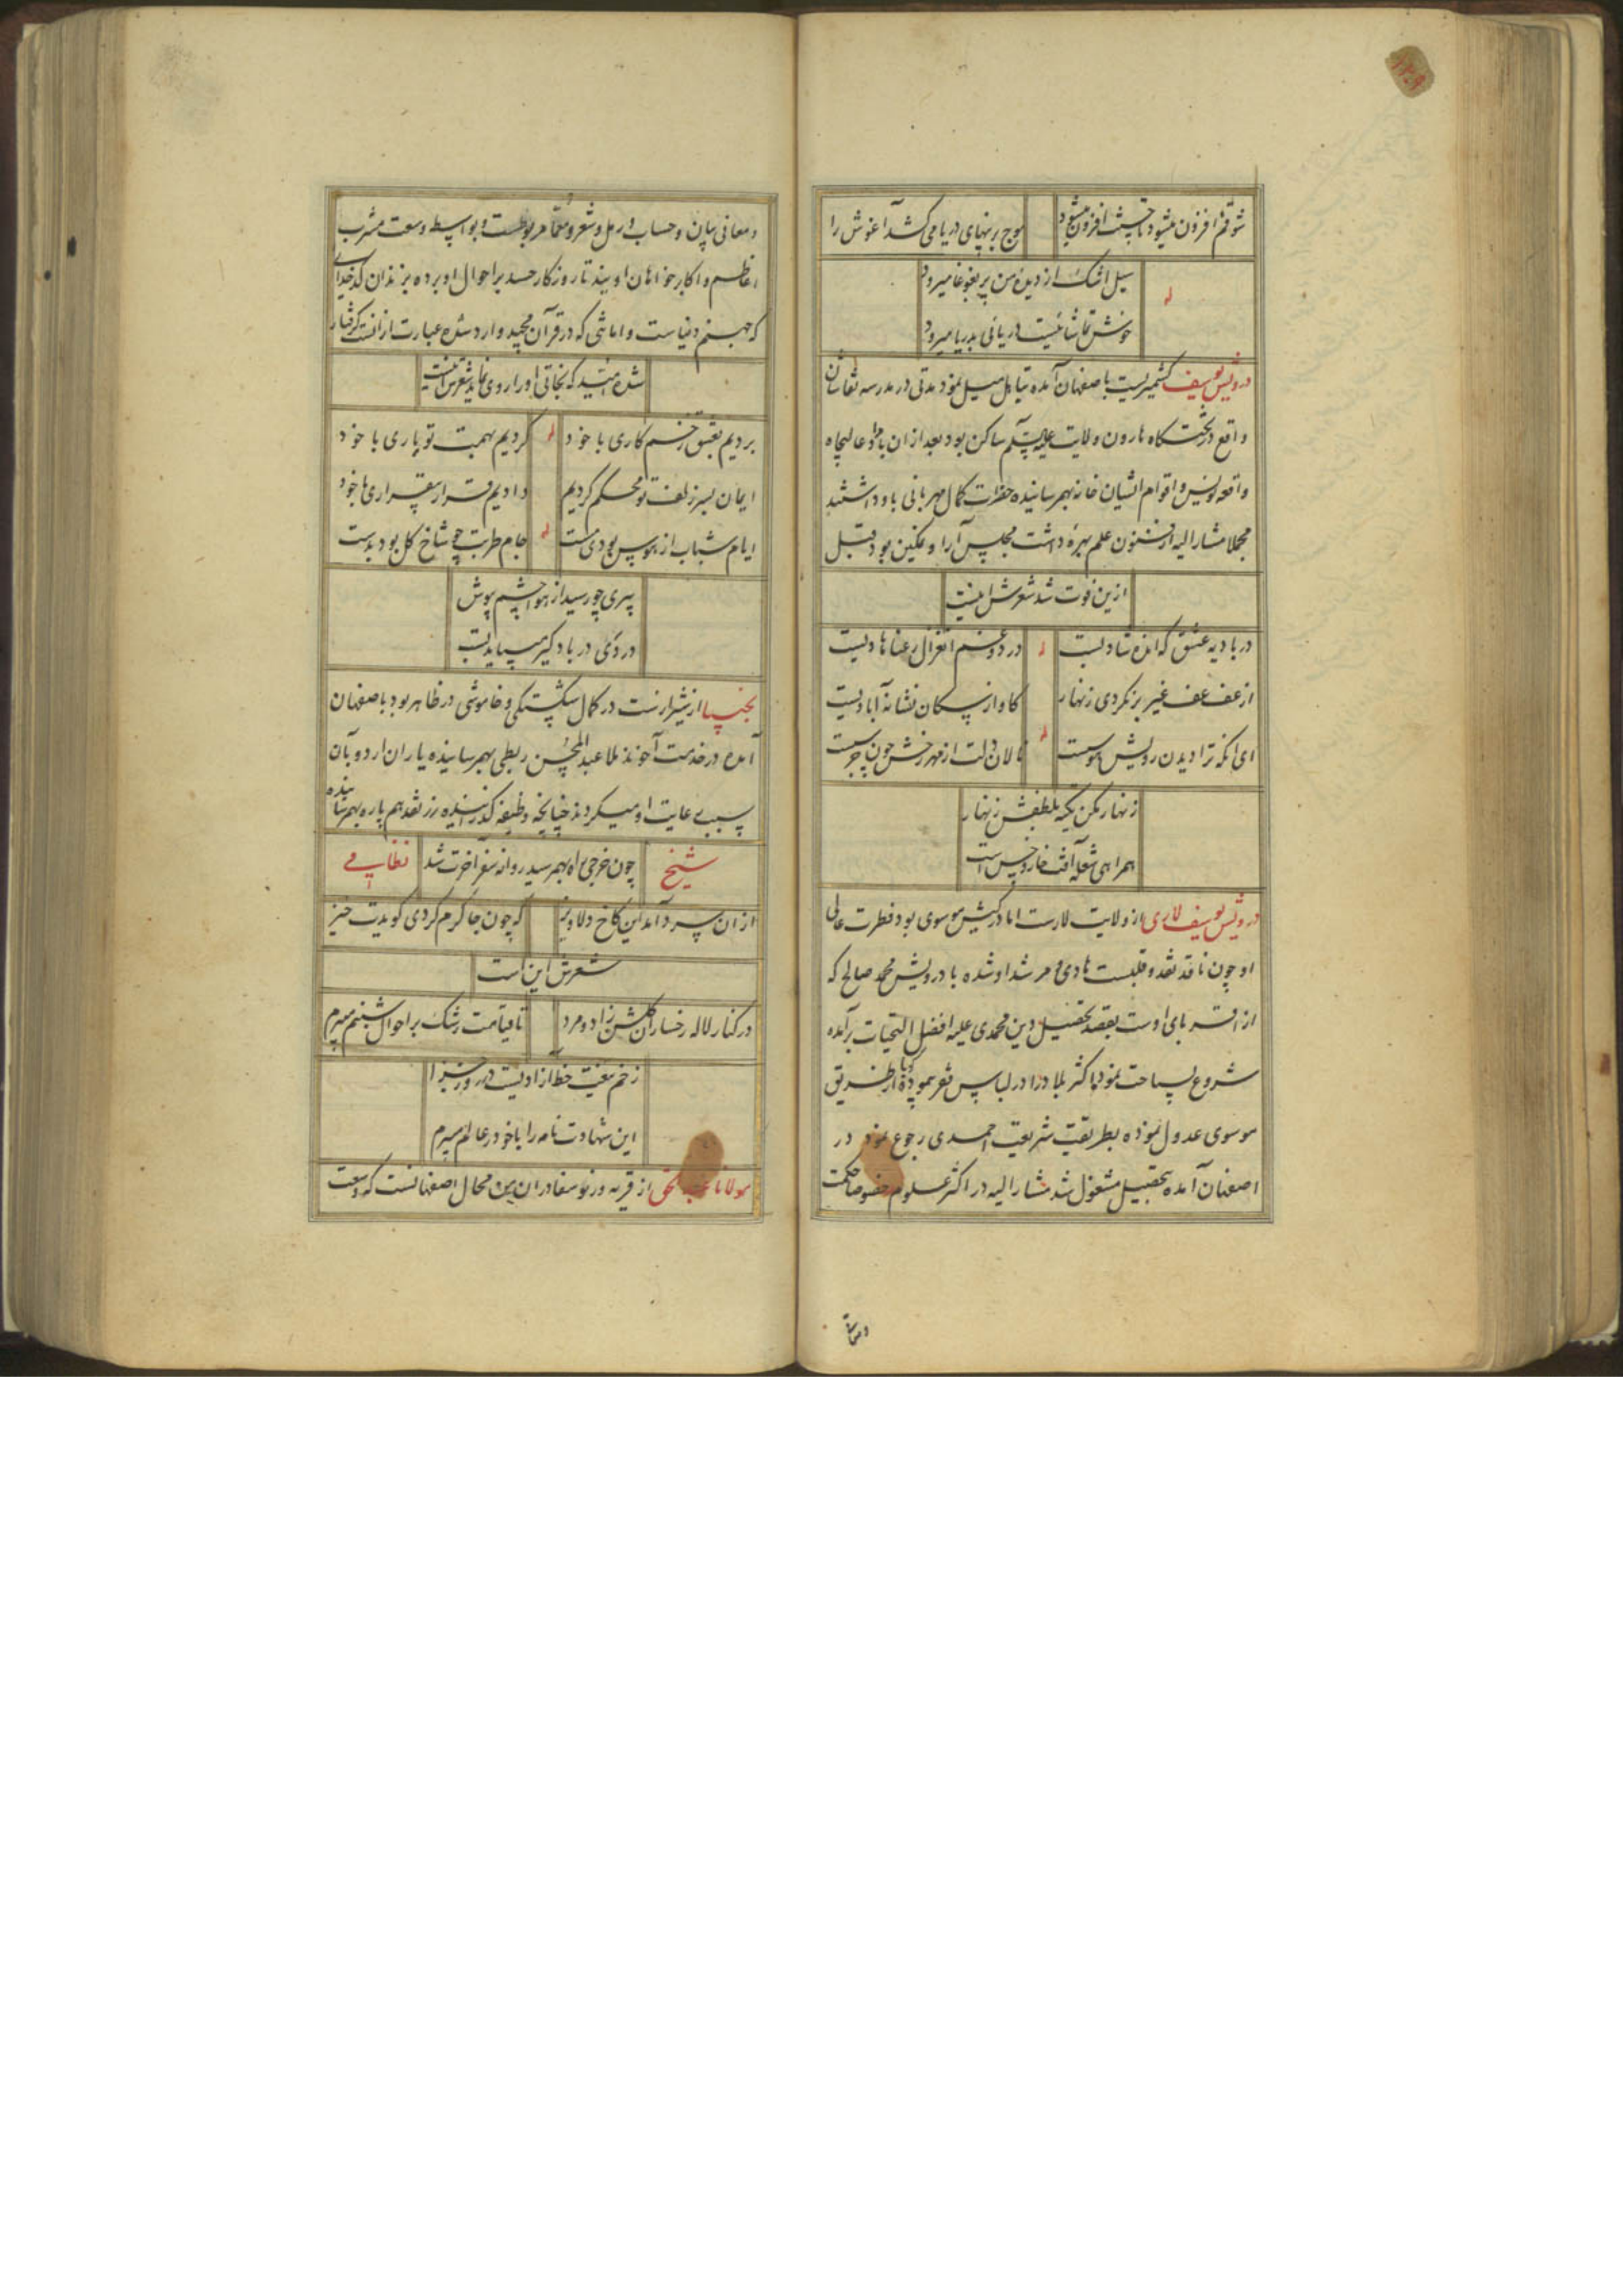 شوقم افزون میشود تا چیث افزون میشود
موج بر پنهای دریا می کشد آغوش را
سیل اشک از دیده من پر بغوغا میرود
خوش تماشائیست دریائی بدریا میرود
درویش یوسف کشمیریست باصفهان آمده بتاهل میل نمود مدتی در مدرسه نقاشان
واقع در تختگاه هارون ولایت علیه السلام ساکن بود بعد ازان با عالیجاه
واقعه نویس و اقوام ایشان خانه بهم رسانیده حضرات کمال مهربانی باو داشتند
مجملا مشار الیه از فنون علم بهره داشت مجلس آرا و نمکین بود قبل
ازین فوت شد شعرش اینست
در بادیه عشق که اندهشادیست
درد و غم آن غزال رعنا هادیست
از عف عف غیر بر نگردی زنهار
کاواز سگان نشانه آبادیست
ای آنکه ترا دیدن رویش هوسست
نالان دلت از مهر رخش چون جرسست
زنهار مکن تکیه بلطفش زنهار
همراهی شعله آفت خار و خس است
درویش یوسف لاری از ولایت لارست اما در کیش موسوی بود فطرت عالی
او چون ناقد نقد و قلبست هادی و مرشد او شده با درویش محمد صالح که
از اقربای اوست بقصد تحصیل دین محمدی علیه افضل التحیات برآمده
شروع بسیاحت نمود اکثر بلاد را در لباس فقر پیموده از طریق
موسوی عدول نموده بطریقت شریعت احمدی رجوع نمود در
اصفهان آمده بتحصیل مشغول شد مشار الیه در اکثر علوم خصوصا حکمت
و معانی بیان و حساب و رمل و شعر و معما مربوطست و بواسطه وسعت مشرب
اعاظم و اکابر خواهان اویند تا روزگار حسد بر احوال او برده بزندان کدخدایی
که جهنم دنیاست و اماشی که در قرآن مجید وارد شده عبارت از آنست گرفتار
شده امید که نجاتی او را روی نماید شعرش اینست
بردیم بعشق زخم کاری با خود
کردیم بهمت تو یاری با خود
ایمان بسر زلف تو محکم کردیم
دادیم قرار بیقراری با خود
ایام شباب از هوس بودی مست
جام طربت چو شاخ گل بود بدست
پیری چو رسید از هوا چشم بپوش
در دی در بادگیر میباید بست
نجیبا از شیرازست در کمال شکستگی و خاموشی در ظاهر بود باصفهان
آمده در خدمت آخوند ملا عبد المحسن ربطی بهم رسانیده یاران اردو بآن
سبب رعایت او میکردند چنانچه وظیفه گذرانیده زر نقد هم پاره بهم رسانیده
چون خرجی راه بهم رسید روانه سفر آخرت شد
شیخ نظامی
از ان سرد آمد این کاخ دلاویز
که چون جا گرم کردی گویدت خیز
شعرش این است
در کنار لاله رخساران گلشن زاد و مرد
تا قیامت رشک بر احوال شبنم میبرم
زخم تیغت خط آزادیست در روز جزا
این شهادت نامه را با خود در عالم میبرم
مولانا از قریه ورنوسفادران من محال اصفهانست که وسعت